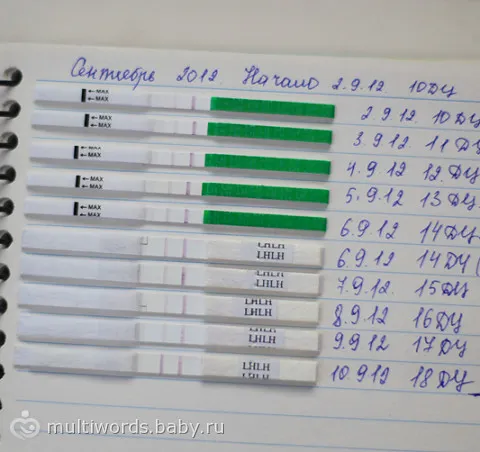 Сентябрь 2012 Начало 2.9.12 10ДЦ
←MAX
←MAX
2.9.12 10 ДЦ
←MAX
←MAX
3.9.12 11 ДЦ
←MAX
←MAX
4.9.12 12 ДЦ
←MAX
←MAX
5.9.12 13 ДЦ
←MAX
←MAX
6.9.12 14ДЦ
LHLH
LHLH
6.9.12 14ДЦ (
LHLH
LHLH
7.9.12. 15ДЦ
LHLH
LHLH
8.9.12 16ДЦ
LHLH
LHLH
9.9.12 17ДЦ
LHLH
LHLH
10.9.12 18ДЦ
multiwords.baby.ru